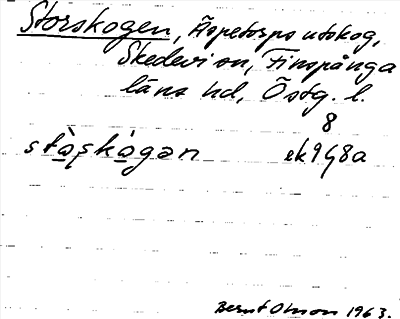 Storskogen, Äspetorps utskog,
Skedevi sn, Finspånga
läns hd, Östg. l.
8
stà̱ʂkà̱gən ek9g8a
Bernt Olsson 1963.